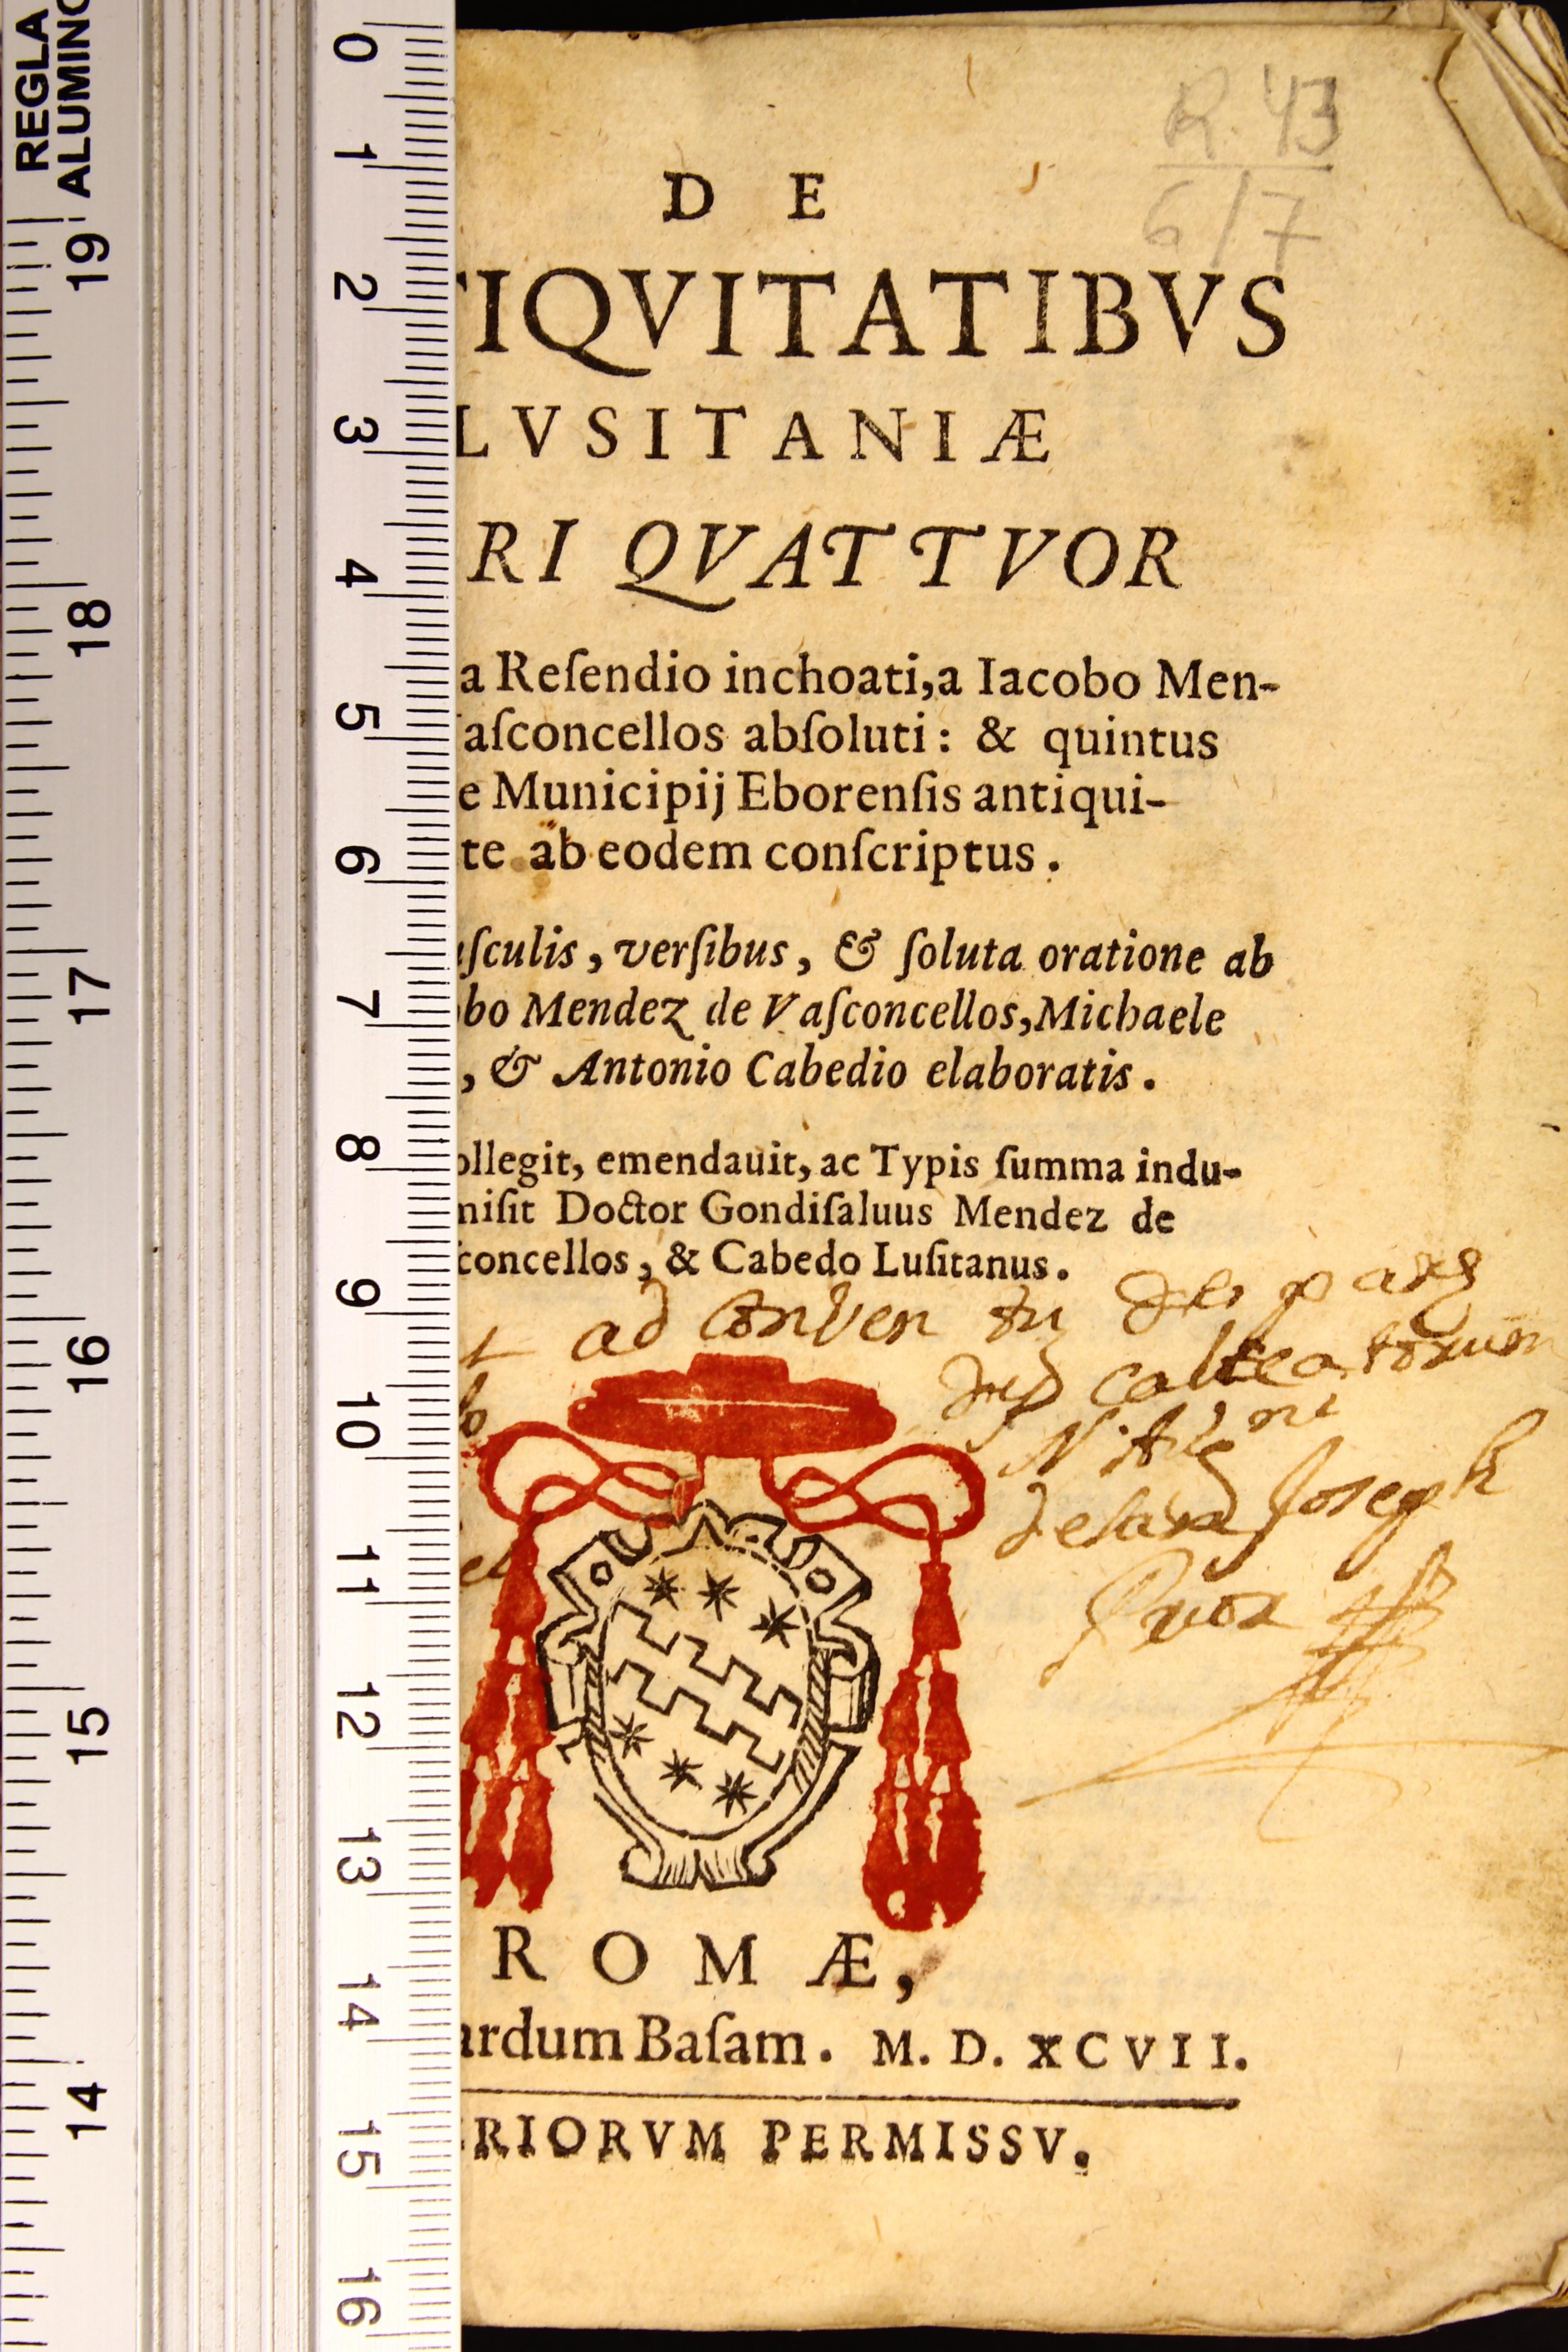 REGLA
ALUMINO
0
1
2
3
4
5
6
7
8
9
10
11
12
13
14
15
16
19
18
17
16
15
14
R. 43
6/7
D E
TIQVITATIBVS
LVSITANIÆ
RI QVATTVOR
a Reſendio inchoati, a Iacobo Men-
aſconcellos abſoluti: & quintus
e Municipij Eborenſis antiqui-
te ab eodem conſcriptus.
ſculis, verſibus, & ſoluta oratione ab
bo Mendez de Vaſconcellos, Michaele
, & Antonio Cabedio elaboratis.
ollegit, emendauit, ac Typis ſumma indu-
miſit Doctor Gondiſaluus Mendez de
ſconcellos, & Cabedo Luſitanus.
ad Conven
calceatorum
Joseph
R O M Æ,
ardum Baſam. M. D. XCVII.
RIORVM PERMISSV.